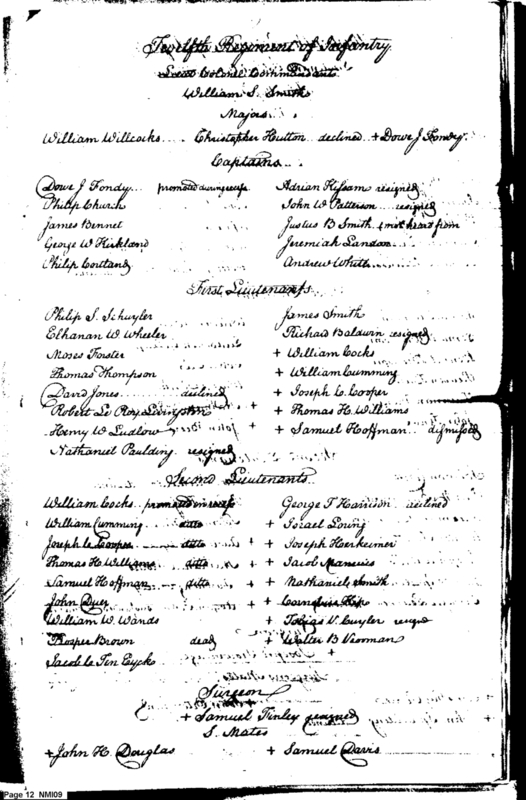 Twelfth Regiment of Infantry
Lieut Colonel Commandant
William S. Smith
Majors
William Willcocks Christopher Hutton declined + Dowe J Fondy
Captains
Dowe J Fondy promoted during recess Adrian Kissam resigned
Philip Church John W Patterson resigned
James Bennet Justus B Smith + not heard from
George W Kirkland Jeremiah Landon
Philip Cortland Andrew White
First Lieutenants
Philip S. Schuyler James Smith
Elhanan W Wheeler Richard Baldwin resigned
Moses Forster + William Cocks
Thomas Thompson + William Cumming
David Jones declined + Joseph C. Cooper
Robert Le Roy Livingston + + Thomas H. Williams
Henry W Ludlow + + Samuel Hoffman dismissed
Nathaniel Paulding resigned
Second Lieutenants
William Cocks promoted in recess George T Harrison declined
William Cumming ditto + Israel Loring
Joseph C Cooper ditto + + Joseph Herkeimer
Thomas H Williams ditto + + Jacob Mancius
Samuel Hoffman ditto + + Nathaniel Smith
John Duer + + Cornelius Kip
William W. Wands + Tobias V. Cuyler resigd
Prosper Brown dead + Walter B Vrooman
Jacob C Ten Eyck
Surgeon
+ Samuel Finley resigned
S. Mates
+ John H. Douglas + Samuel Davis
Page 12 NMI09